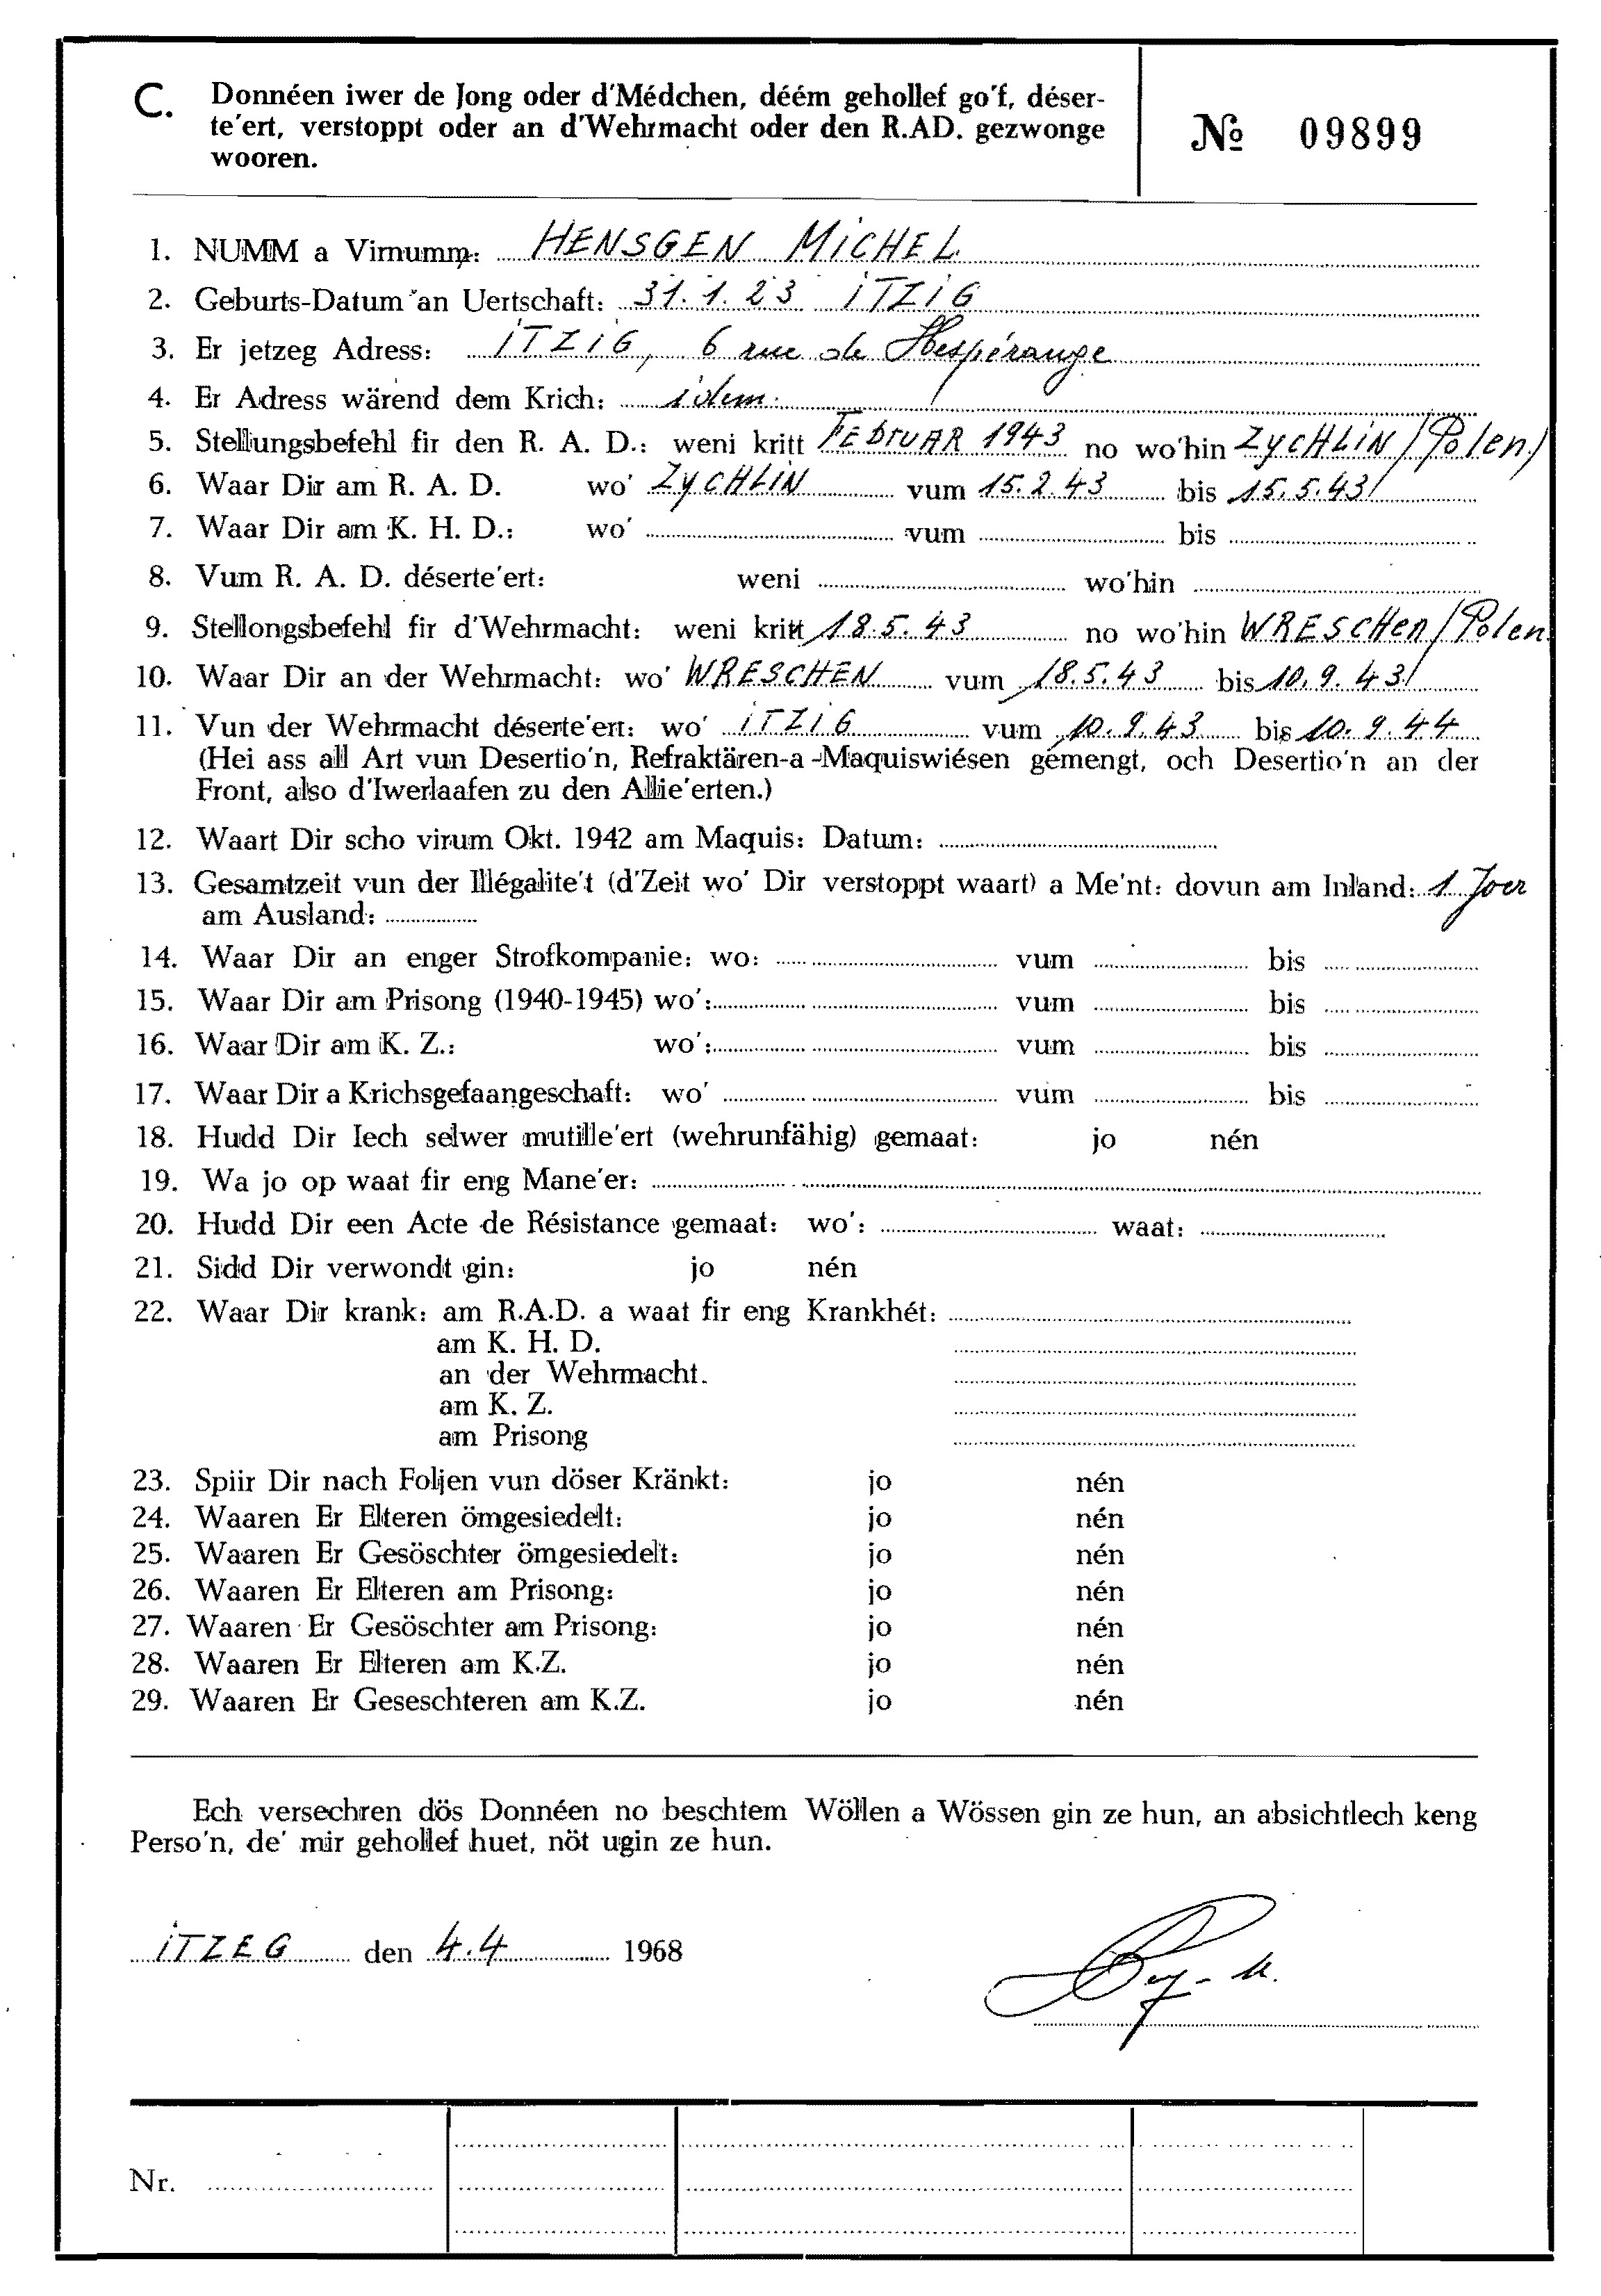 C. Donnéen iwer de Jong oder d'Médchen, déém gehollef go'f, déser-
te'ert, verstoppt oder an d'Wehrmacht oder den R.AD. gezwonge
wooren.
№ 09899
1. NUMM a Virnumm: HENSGEN MICHEL
2. Geburts-Datum an Uertschaft: 31.1.23 ITZIG
3. Er jetzeg Adress: ITZIG, 6 rue de Hespérange
4. Er Adress wärend dem Krich: idem.
5. Stellungsbefehl fir den R. A. D.: weni kritt FEBRUAR 1943 no wo'hin ZYCHLIN/Polen/
6. Waar Dir am R. A. D. wo' ZYCHLIN vum 15.2.43 bis 15.5.43/
7. Waar Dir am K. H. D.: wo' vum bis
8. Vum R. A. D. déserte'ert: weni wo'hin
9. Stellongsbefehl fir d'Wehrmacht: weni kritt 18.5.43 no wo'hin WRESCHEN/Polen
10. Waar Dir an der Wehrmacht: wo' WRESCHEN vum 18.5.43 bis 10.9.43/
11. Vun der Wehrmacht déserte'ert: wo' ITZIG vum 10.9.43 bis 10.9.44
(Hei ass all Art vun Desertio'n, Refraktären-a -Maquiswiésen gemengt, och Desertio'n an der
Front, also d'Iwerlaafen zu den Allie'erten.)
12. Waart Dir scho virum Okt. 1942 am Maquis: Datum:
13. Gesamtzeit vun der Illégalite't (d'Zeit wo' Dir verstoppt waart) a Me'nt: dovun am Inland: 1 Joer
am Ausland:
14. Waar Dir an enger Strofkompanie: wo: vum bis
15. Waar Dir am Prisong (1940-1945) wo': vum bis
16. Waar Dir am K. Z.: wo': vum bis
17. Waar Dir a Krichsgefaangeschaft: wo' vum bis
18. Hudd Dir Iech selwer mutille'ert (wehrunfähig) gemaat: jo nén
19. Wa jo op waat fir eng Mane'er:
20. Hudd Dir een Acte de Résistance gemaat: wo': waat:
21. Sidd Dir verwondt gin: jo nén
22. Waar Dir krank: am R.A.D. a waat fir eng Krankhét:
am K. H. D.
an der Wehrmacht.
am K. Z.
am Prisong
23. Spiir Dir nach Foljen vun döser Kränkt: jo nén
24. Waaren Er Elteren ömgesiedelt: jo nén
25. Waaren Er Gesöschter ömgesiedelt: jo nén
26. Waaren Er Elteren am Prisong: jo nén
27. Waaren Er Gesöschter am Prisong: jo nén
28. Waaren Er Elteren am K.Z. jo nén
29. Waaren Er Geseschteren am K.Z. jo nén
Ech versechren dös Donnéen no beschtem Wöllen a Wössen gin ze hun, an absichtlech keng
Perso'n, de' mir gehollef huet, nöt ugin ze hun.
ITZEG den 4.4 1968
Nr.